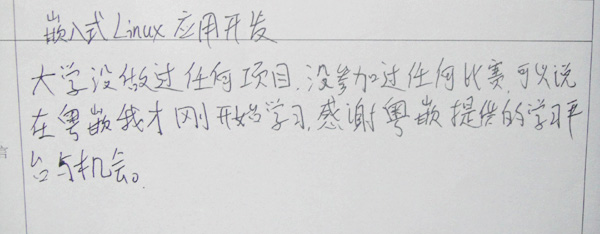 嵌入式Linux应用开发
大学没做过任何项目,没参加过任何比赛,可以说
在粤嵌我才刚开始学习,感谢粤嵌提供的学习平
台与机会。
言